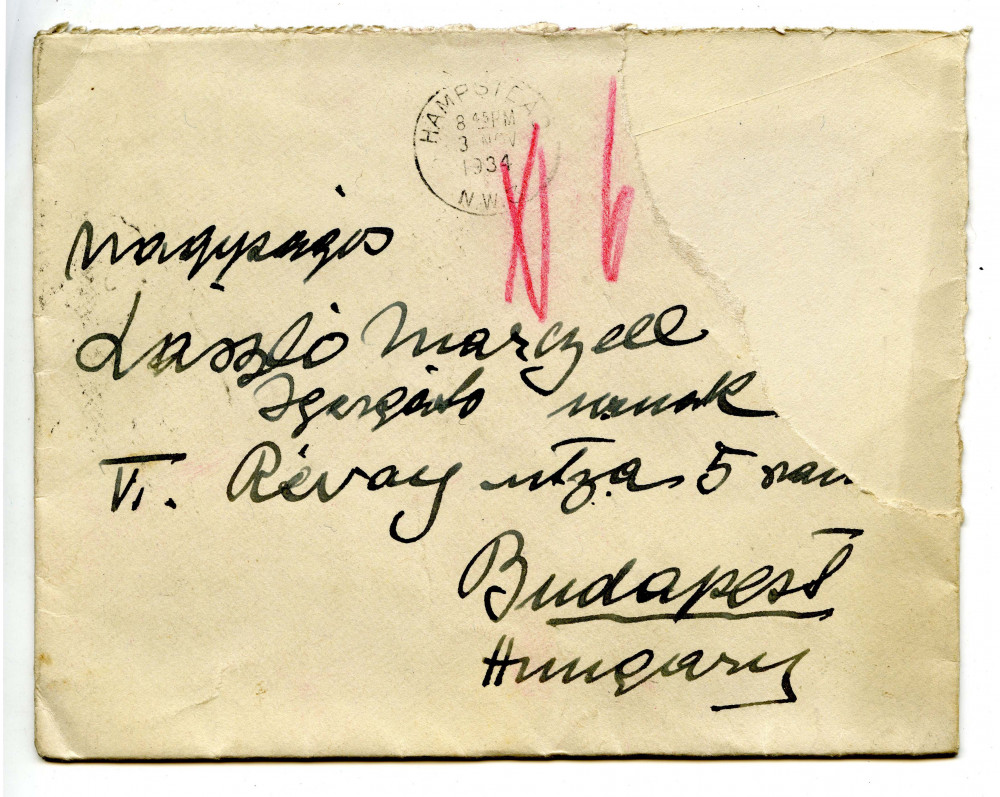 HAMPSTEAD
8 45 PM
3 NOV
1934
N.W.
XI 6
Nagyságos
László Marczell
Igazgató urnak
VI. Révay utza 5 szám
Budapest
Hungary